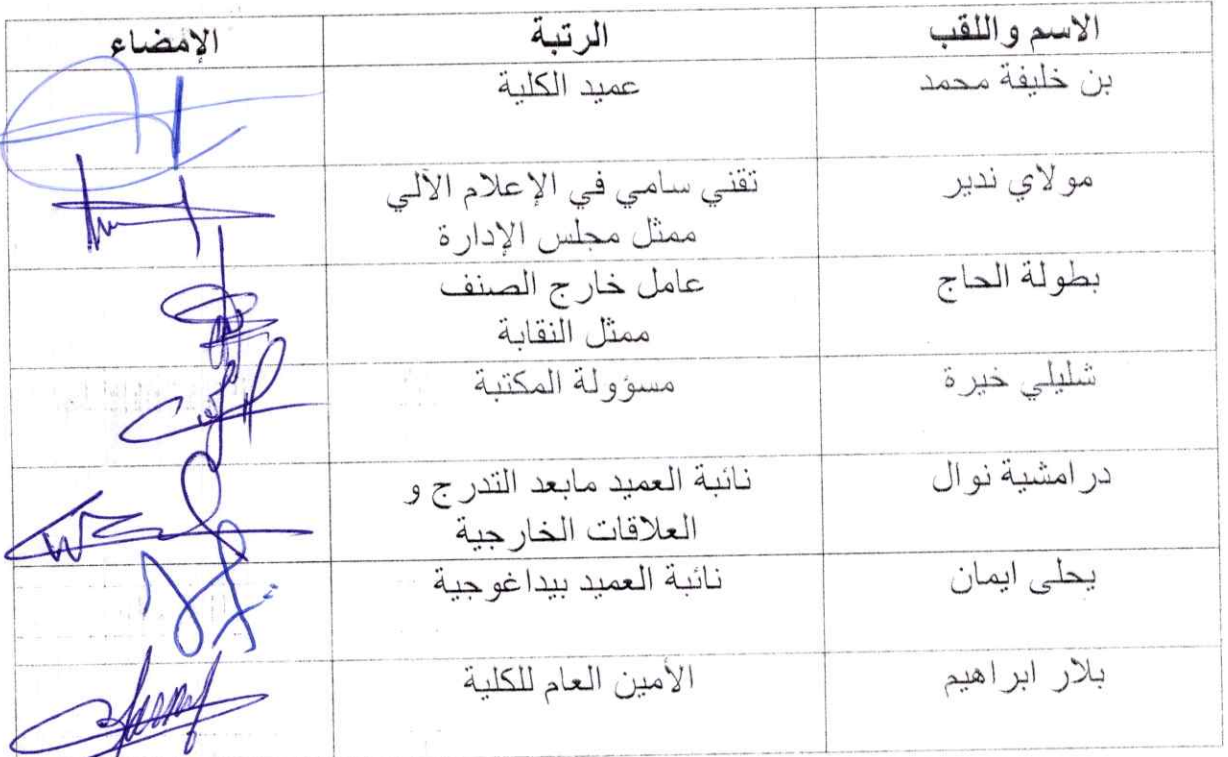 الاسم واللقب الرتبة الإمضاء
بن خليفة محمد عميد الكلية
مولاي ندير تقني سامي في الإعلام الآلي
ممثل مجلس الإدارة
بطولة الحاج عامل خارج الصنف
ممثل النقابة
شليلي خيرة مسؤولة المكتبة
درامشية نوال نائبة العميد مابعد التدرج و
العلاقات الخارجية
يحلى ايمان نائبة العميد بيداغوجية
بلار ابراهيم الأمين العام للكلية